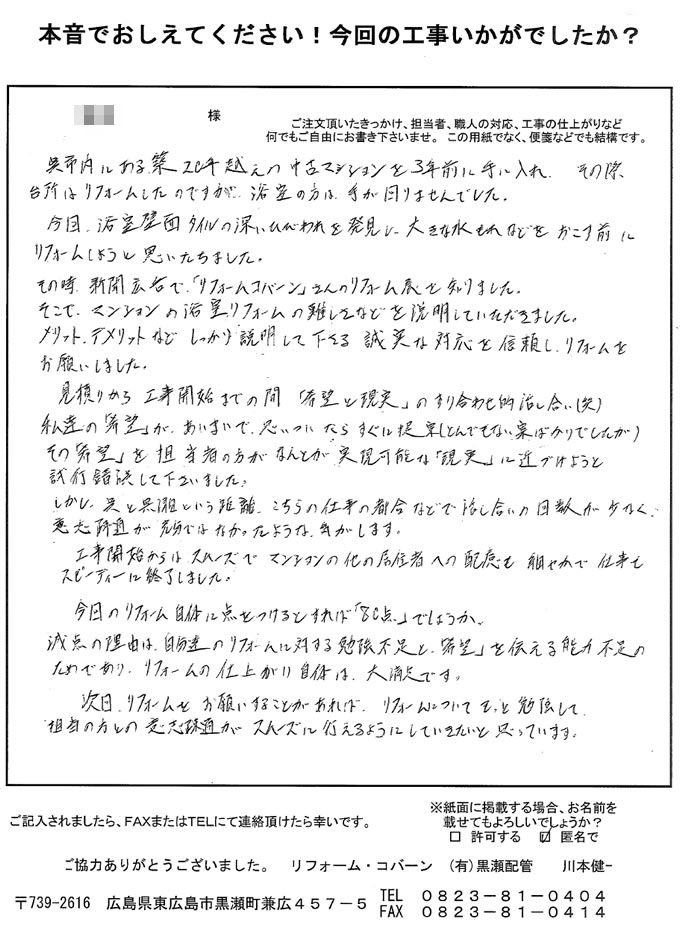 本音でおしえてください！今回の工事いかがでしたか？
様
ご注文頂いたきっかけ、担当者、職人の対応、工事の仕上がりなど
何でもご自由にお書き下さいませ。この用紙でなく、便箋などでも結構です。
呉市内にある築20年越えの中古マンションを3年前に手に入れ、その際、
台所はリフォームしたのですが、浴室の方は手が回りませんでした。
今回、浴室壁面タイルの深いひびわれを発見し、大きな水もれなどをおこす前に
リフォームしようと思いたちました。
その時、新聞広告で、「リフォームコバーン」さんのリフォーム展を知りました。
そこで、マンションの浴室リフォームの難しさなどを説明していただきました。
メリット、デメリットなど しっかり説明して下さる 誠実な対応を信頼し、リフォームを
お願いしました。
見積りから 工事開始までの間 「希望と現実」のすり合わせ的話し合い(笑)
私達の「希望」が、あいまいで、思いついたらすぐに提案(とんでもない案ばかりでしたが)
その「希望」を担当者の方がなんとか実現可能な「現実」に近づけようと
試行錯誤して下さいました。
しかし、呉と黒瀬という距離、こちらの仕事の都合などで話し合いの回数が少なく、
意志疎通が充分ではなかったような気がします。
工事開始からはスムーズで マンションの他の居住者への配慮も 細やかで 仕事も
スピーディーに終了しました。
今回のリフォーム自体に点をつけるとすれば「80点」でしょうか。
減点の理由は、自分達のリフォームに対する勉強不足と、「希望」を伝える能力不足の
ためであり、リフォームの仕上がり自体は、大満足です。
次回、リフォームをお願いすることがあれば、リフォームについてもっと勉強して、
担当の方との意志疎通がスムーズに行えるようにしていきたいと思っています。
ご記入されましたら、FAXまたはTELにて連絡頂けたら幸いです。
※紙面に掲載する場合、お名前を
載せてもよろしいでしょうか？
□ 許可する ☑ 匿名で
ご協力ありがとうございました。 リフォーム・コバーン （有）黒瀬配管 川本健一
〒739-2616 広島県東広島市黒瀬町兼広４５７－５
TEL ０８２３－８１－０４０４
FAX ０８２３－８１－０４１４